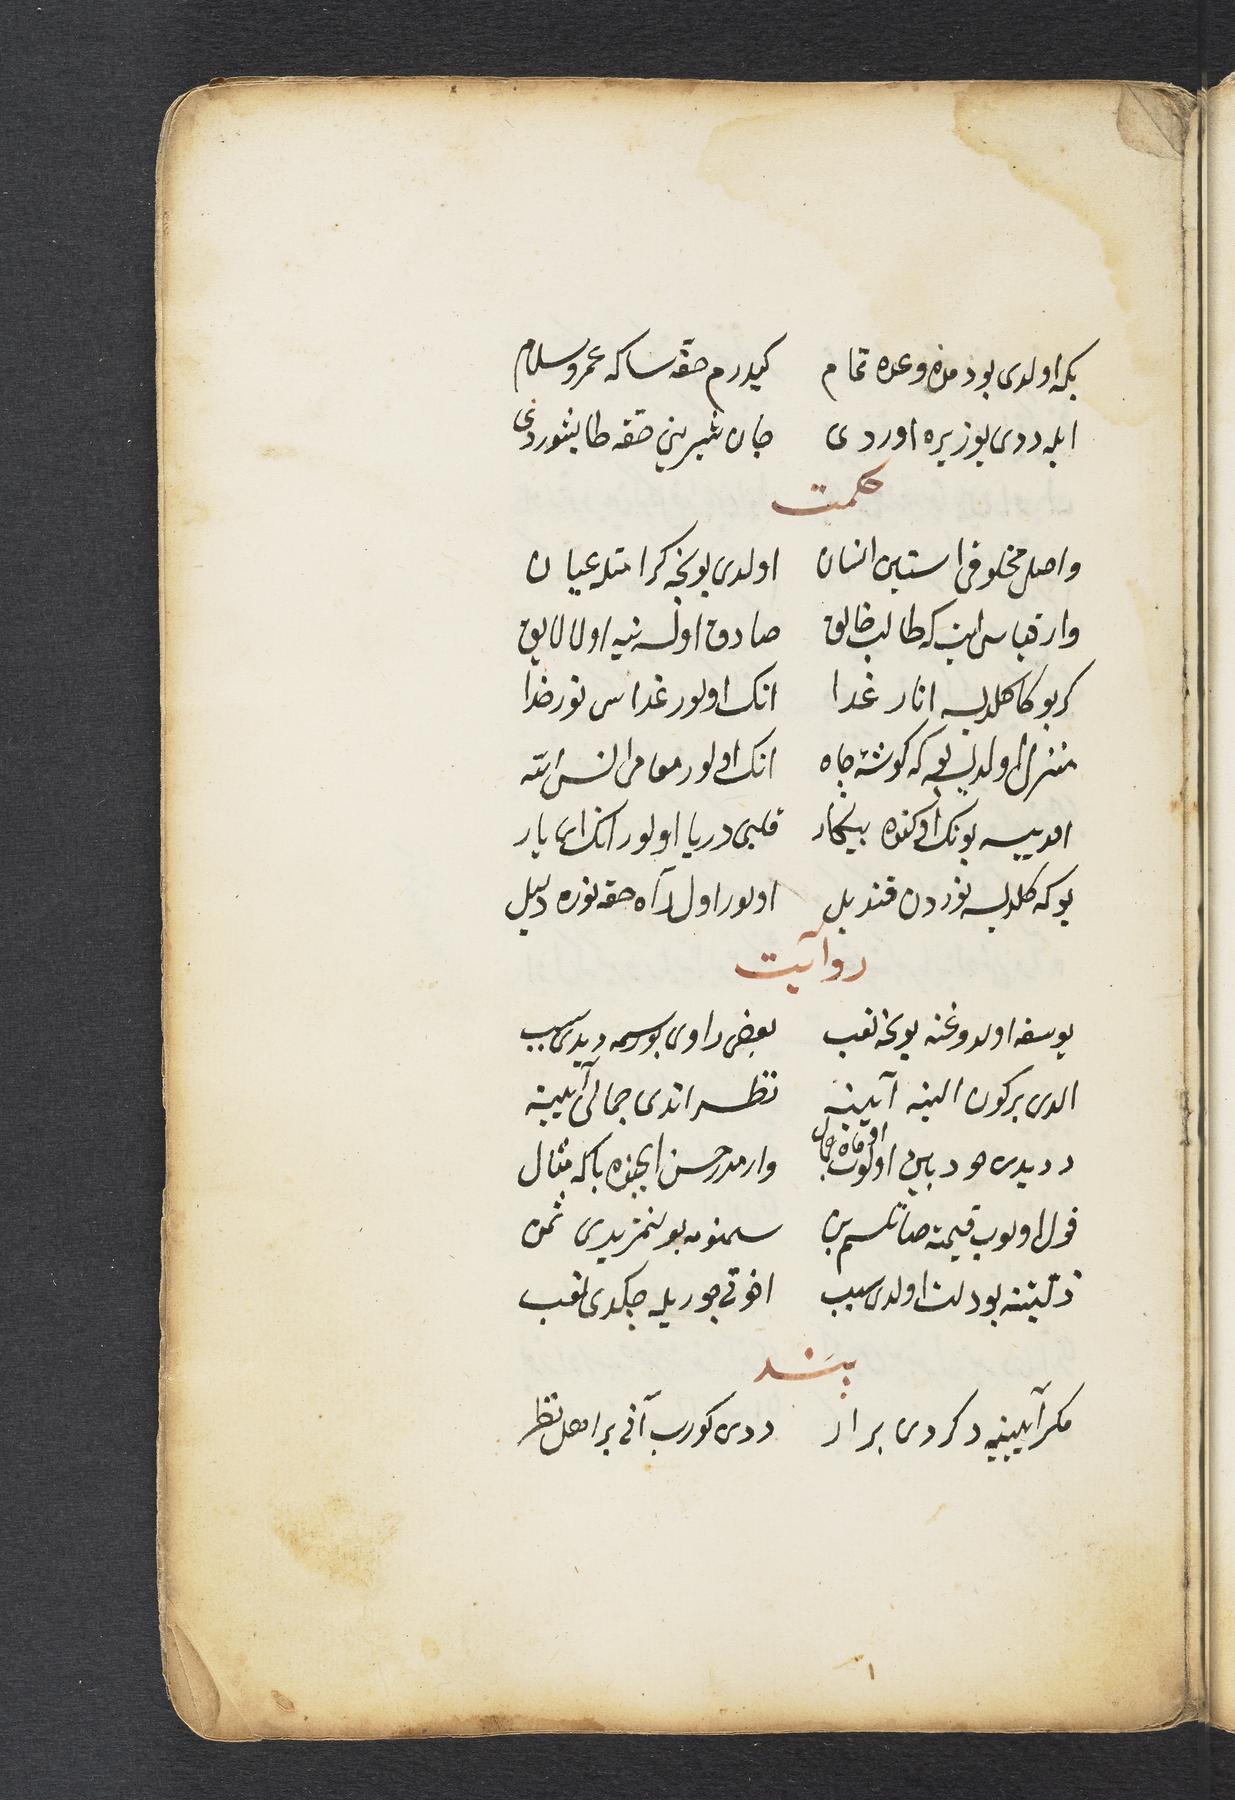 بكه اولدی بودمده وعده تمام کیدرم حقه سا که عمر و سلام
ایله ددی یوزیره اوردی جان شیرینی حقه طابشوردی
حکمت
واصل مخلوقی استین انسان اولدی بونجه کرامتله عیان
وار قیاس ایت که طالب خالق صادق اولسه نیه اولا لایق
کر بوکا کلدیسه انار غدا انک اولور غداسی نور خدا
منزل اولدیسه بوکه کوشهٔ جاه انک اولور مقامی انس الله
اقدیسه بونک اوکنده بیکار قلبی دریا اولور انک ای یار
بوکه کلدیسه نوردن قندیل اولور اول راه حقه نوره دلیل
روایت
یوسفه اولدوغنه بونجه تعب بعضی راوی بوسمه دیدی سبب
الدی برکون الینه آیینه نظر اتدی جمالی آیینه
ددیدی هود بین اولوب او ماه جمال وارمدر حسن ایچنده باکه مثال
قول اولوب قیمته صاتلسم بن بولنمزیدی ثمن
ذلتینه بودلت اولدی سبب اخوتی جوریله چکدی تعب
پند
مکر آیینیه دکردی براز ددی کورب آنی بر اهل نظر
۱